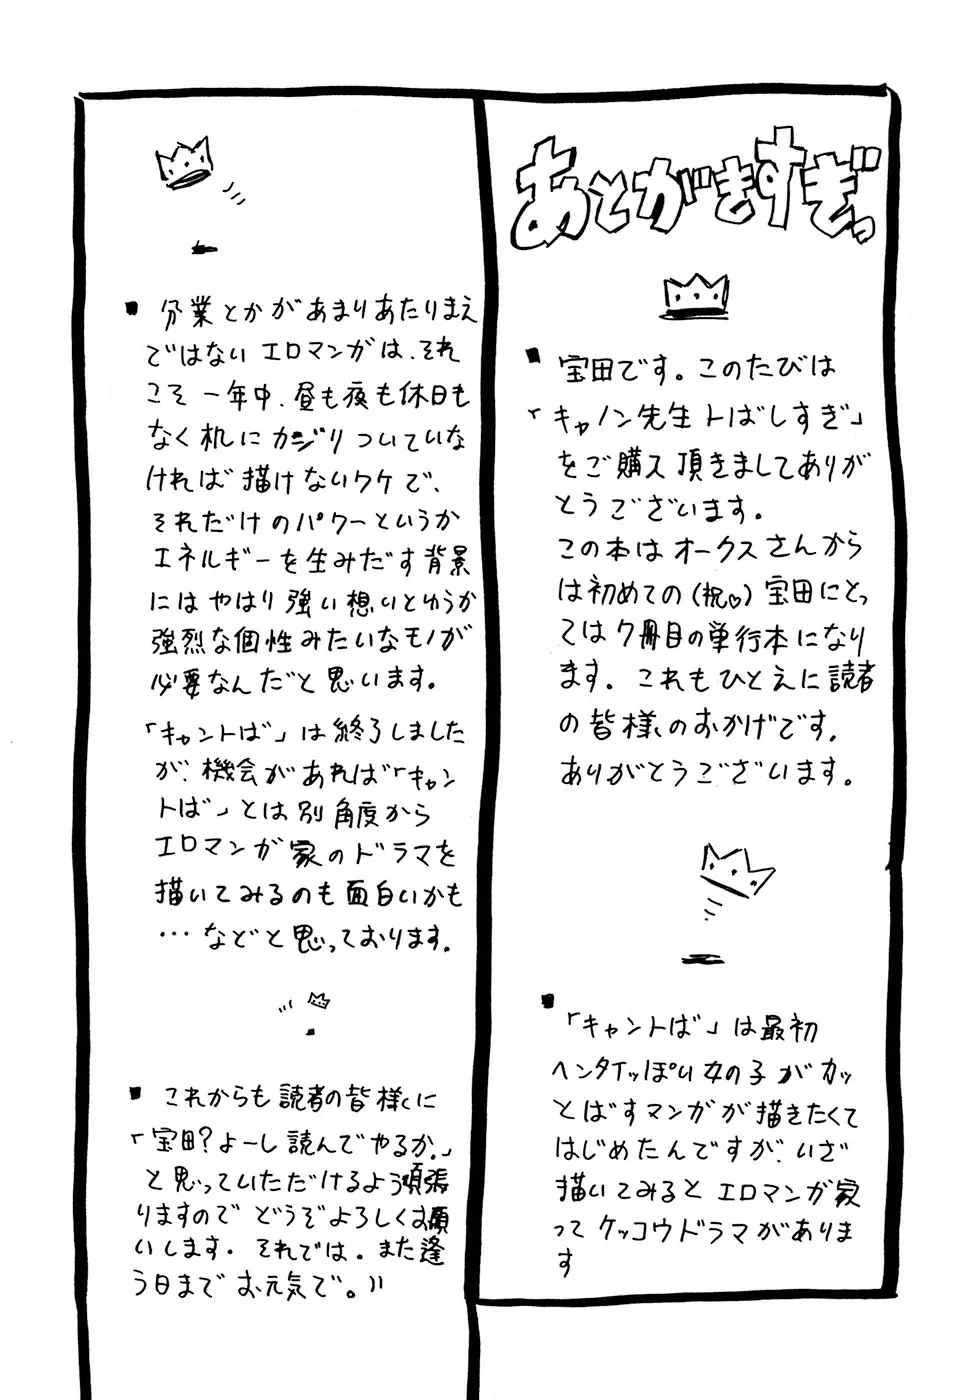 あとがきすぎっ
■宝田です。このたびは
「キャノン先生トばしすぎ」
をご購入頂きましてありが
とうございます。
この本はオークスさんから
は初めての(祝♡)宝田にとっ
ては7冊目の単行本になり
ます。これもひとえに読者
の皆様のおかげです。
ありがとうございます。
■「キャントば」は最初
ヘンタイっぽい女の子がカッ
とばすマンガが描きたくて
はじめたんですが、いざ
描いてみるとエロマンガ家
ってケッコウドラマがありま
す
■分業とかがあまりあたりまえ
ではないエロマンガは、それ
こそ一年中、昼も夜も休日も
なく机にカジりついていな
ければ描けないワケで、
それだけのパワーというか
エネルギーを生みだす背景
にはやはり強い想いとゆうか
強烈な個性みたいなモノが
必要なんだと思います。
「キャントば」は終了しました
が、機会があれば「キャン
トば」とは別角度から
エロマンガ家のドラマを
描いてみるのも面白いかも
…などと思っております。
■これからも読者の皆様に
「宝田?よーし読んでやるか。」
と思っていただけるよう頑張
りますのでどうぞよろしくお願
いします。それでは。また逢
う日までお元気で。